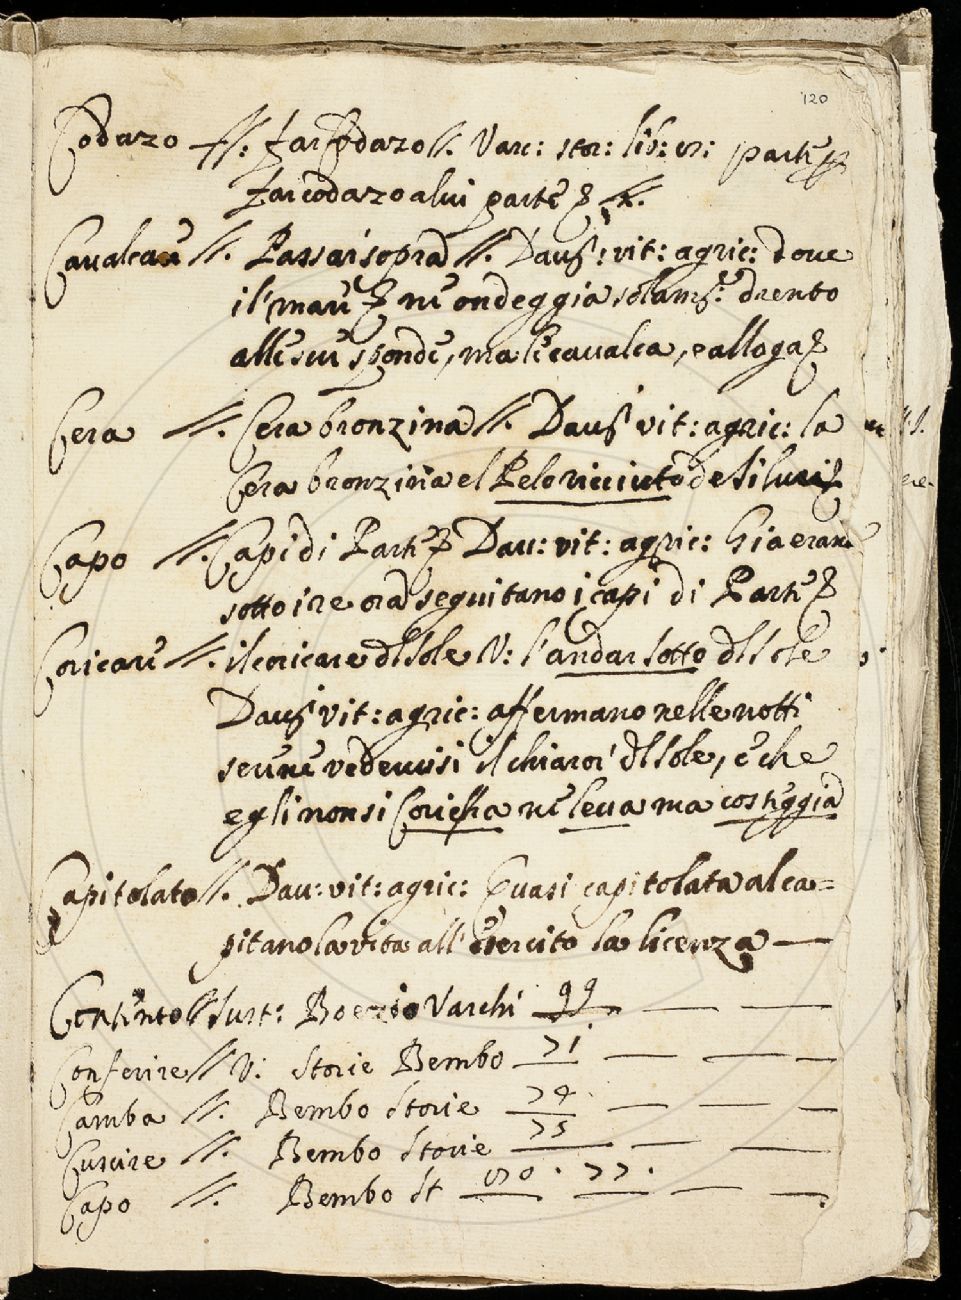 120
Codazo //. far codazo //. Varc: stor: lib: 9: parte
far codazo a lui parte //.
Caualcare //. Passar sopra //. Dau: vit: agric: doue
il mare nè ondeggia solam: drento
alle sue sponde, ma le caualca, e alloga
Cera //. Cera bronzina //. Dau: vit: agric: la
Cera bronzina el Pelo ricciuto de Siluri
Capo //. Capi di Parte Dau: vit: agric: Gia erano
sotto i re ora seguitano i capi di Parte
Coricare //. il coricare dl sole V: l'andar sotto dl sole
Dau: vit: agric: affermano nelle notti
serene vedervisi il chiaror dl sole, e che
egli non si Coricha nè leua ma costeggia
Capitolato //. Dau: vit: agric: Quasi capitolata al ca=
pitano la vita all' esercito la licenza —
Contento // sust: Boezio Varchi 99 — —
Conferire // V: Storie Bembo 71 — — —
Camba //. Bembo Storie 74 — — —
Cuscire //. Bembo Storie 75 — —
Capo //. Bembo St 90. 77. — —